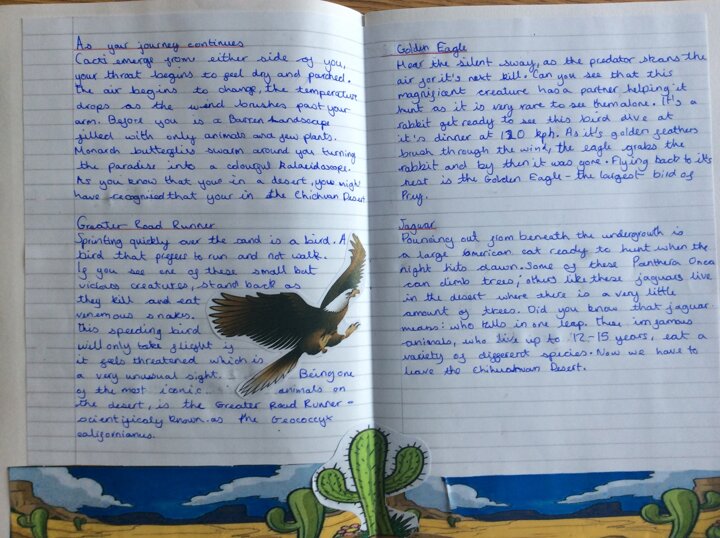 As your journey continues
Cacti emerge from either side of you,
your throat begins to feel dry and parched.
the air begins to change, the temperature
drops as the wind brushes past your
arm. Before you is a Barren landscape
filled with only animals and few plants.
Monarch butterflies swarm around you turning
the paradise into a colourful Kalaidoscope.
As you know that your in a desert, you might
have recognised that your in the Chichuan Desert
Greater Road Runner
Sprinting quickly over the sand is a bird. A
bird that prefers to run and not walk.
If you see one of these small but
vicious creatures, stand back as
they kill and eat
venemous snakes.
This speeding bird
will only take flight if
it feels threatened which is
a very unusual sight. Being one
of the most iconic animals on
the desert, is the Greater Road Runner -
scientificaly known as the Geococcyx
californianus.
Golden Eagle
Hear the silent sway, as the predator skans the
air for it's next kill. Can you see that this
magnificant creature has a partner helping it
hunt as it is very rare to see them alone. It's a
rabbit get ready to see this bird dive at
it's dinner at 120 kph. As it's golden feathers
brush through the wind, the eagle grabs the
rabbit and by then it was gone. Flying back to it's
nest is the Golden Eagle - the largest bird of
Prey.
Jaguar
Pouncing out from beneath the undergrowth is
a large American cat ready to hunt when the
night hits dawn. Some of these Panthera Onca
can climb trees, others like these jaguars live
in the desert where there is a very little
amount of trees. Did you know that jaguar
means: who kills in one leap. These infamous
animals, who live up to 12-15 years, eat a
variety of different species. Now we have to
leave the Chihuahuan Desert.